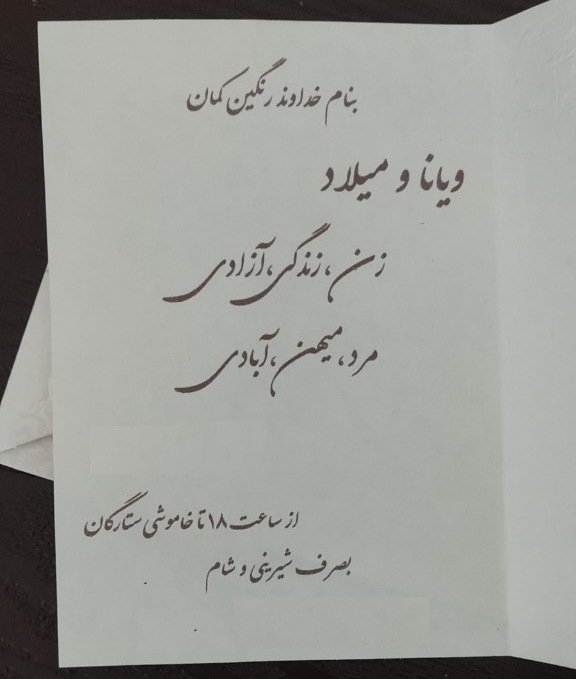 بنام خداوند رنگین کمان
ویانا و میلاد
زن، زندگی، آزادی
مرد، میهن، آبادی
از ساعت ۱۸ تا خاموشی ستارگان
بصرف شیرینی و شام